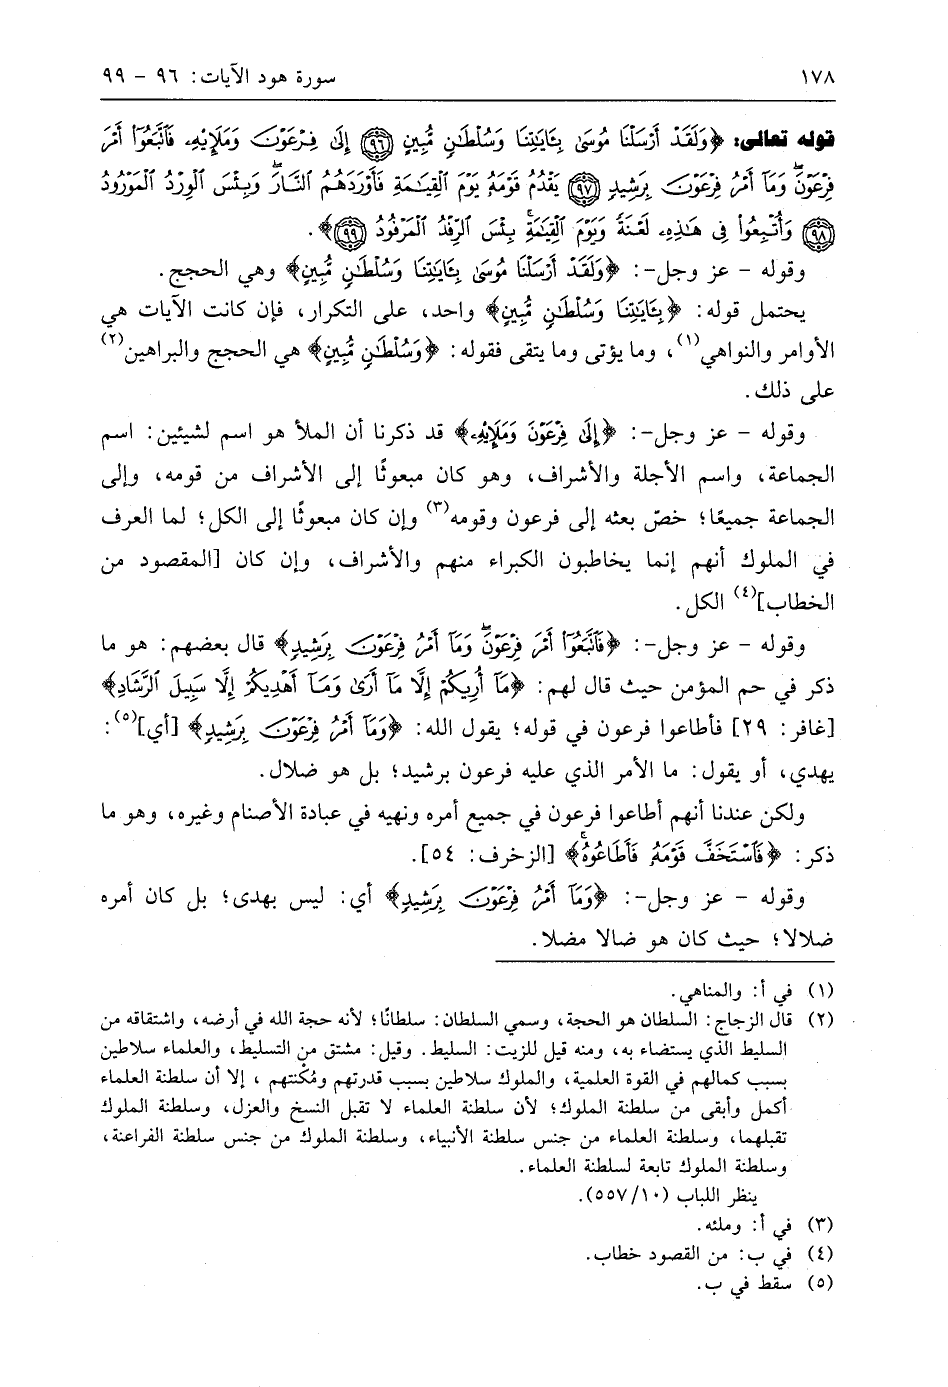 ١٧٨ سورة هود الآيات: ٩٦ - ٩٩
قوله تعالى: ﴿وَلَقَدْ أَرْسَلْنَا مُوسَىٰ بِـَٔايَـٰتِنَا وَسُلْطَـٰنٍ مُّبِينٍ ٩٦ إِلَىٰ فِرْعَوْنَ وَمَلَإِيْهِۦ فَٱتَّبَعُوٓا۟ أَمْرَ
فِرْعَوْنَ ۖ وَمَآ أَمْرُ فِرْعَوْنَ بِرَشِيدٍ ٩٧ يَقْدُمُ قَوْمَهُۥ يَوْمَ ٱلْقِيَـٰمَةِ فَأَوْرَدَهُمُ ٱلنَّارَ ۖ وَبِئْسَ ٱلْوِرْدُ ٱلْمَوْرُودُ
٩٨ وَأُتْبِعُوا۟ فِى هَـٰذِهِۦ لَعْنَةً وَيَوْمَ ٱلْقِيَـٰمَةِ ۚ بِئْسَ ٱلرِّفْدُ ٱلْمَرْفُودُ ٩٩﴾.
وقوله - عز وجل-: ﴿وَلَقَدْ أَرْسَلْنَا مُوسَىٰ بِـَٔايَـٰتِنَا وَسُلْطَـٰنٍ مُّبِينٍ﴾ وهي الحجج.
يحتمل قوله: ﴿بِـَٔايَـٰتِنَا وَسُلْطَـٰنٍ مُّبِينٍ﴾ واحد، على التكرار، فإن كانت الآيات هي
الأوامر والنواهي(١)، وما يؤتى وما يتقى فقوله: ﴿وَسُلْطَـٰنٍ مُّبِينٍ﴾ هي الحجج والبراهين(٢)
على ذلك.
وقوله - عز وجل-: ﴿إِلَىٰ فِرْعَوْنَ وَمَلَإِيْهِۦ﴾ قد ذكرنا أن الملأ هو اسم لشيئين: اسم
الجماعة، واسم الأجلة والأشراف، وهو كان مبعوثًا إلى الأشراف من قومه، وإلى
الجماعة جميعًا؛ خصّ بعثه إلى فرعون وقومه(٣) وإن كان مبعوثًا إلى الكل؛ لما العرف
في الملوك أنهم إنما يخاطبون الكبراء منهم والأشراف، وإن كان [المقصود من
الخطاب](٤) الكل.
وقوله - عز وجل-: ﴿فَٱتَّبَعُوٓا۟ أَمْرَ فِرْعَوْنَ ۖ وَمَآ أَمْرُ فِرْعَوْنَ بِرَشِيدٍ﴾ قال بعضهم: هو ما
ذكر في حم المؤمن حيث قال لهم: ﴿مَآ أُرِيكُمْ إِلَّا مَآ أَرَىٰ وَمَآ أَهْدِيكُمْ إِلَّا سَبِيلَ ٱلرَّشَادِ﴾
[غافر: ٢٩] فأطاعوا فرعون في قوله؛ يقول الله: ﴿وَمَآ أَمْرُ فِرْعَوْنَ بِرَشِيدٍ﴾ [أي](٥):
يهدي، أو يقول: ما الأمر الذي عليه فرعون برشيد؛ بل هو ضلال.
ولكن عندنا أنهم أطاعوا فرعون في جميع أمره ونهيه في عبادة الأصنام وغيره، وهو ما
ذكر: ﴿فَٱسْتَخَفَّ قَوْمَهُۥ فَأَطَاعُوهُ ۚ﴾ [الزخرف: ٥٤].
وقوله - عز وجل-: ﴿وَمَآ أَمْرُ فِرْعَوْنَ بِرَشِيدٍ﴾ أي: ليس بهدى؛ بل كان أمره
ضلالا؛ حيث كان هو ضالا مضلا.
(١) في أ: والمناهي.
(٢) قال الزجاج: السلطان هو الحجة، وسمي السلطان: سلطانًا؛ لأنه حجة الله في أرضه، واشتقاقه من
السليط الذي يستضاء به، ومنه قيل للزيت: السليط. وقيل: مشتق من التسليط، والعلماء سلاطين
بسبب كمالهم في القوة العلمية، والملوك سلاطين بسبب قدرتهم ومُكْنتهم ، إلا أن سلطنة العلماء
أكمل وأبقى من سلطنة الملوك؛ لأن سلطنة العلماء لا تقبل النسخ والعزل، وسلطنة الملوك
تقبلهما، وسلطنة العلماء من جنس سلطنة الأنبياء، وسلطنة الملوك من جنس سلطنة الفراعنة،
وسلطنة الملوك تابعة لسلطنة العلماء.
ينظر اللباب (١٠/ ٥٥٧).
(٣) في أ: وملئه.
(٤) في ب: من القصود خطاب.
(٥) سقط في ب.